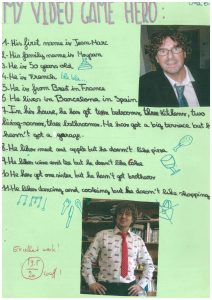 MY VIDEO GAME HERO :
1- His first name is Jean-Marc
2- His family name is
3- He is 50 years old,
4- He is French
5- He is from Brest in France
6- He lives in Barcelona, in Spain
7- In his house, he has got two bedrooms, three kitchens, two
living-rooms, three bathrooms. He has got a big terrace, but it
hasn't got a garage.
8- He likes meat and apples but he doesn't like pizza
9- He likes wine and tea but he doesn't like Coke
10- He has got one sister, but he hasn't got brother
11- He likes dancing and cooking, but he doesn't like shopping
Excellent work!
19.5
20